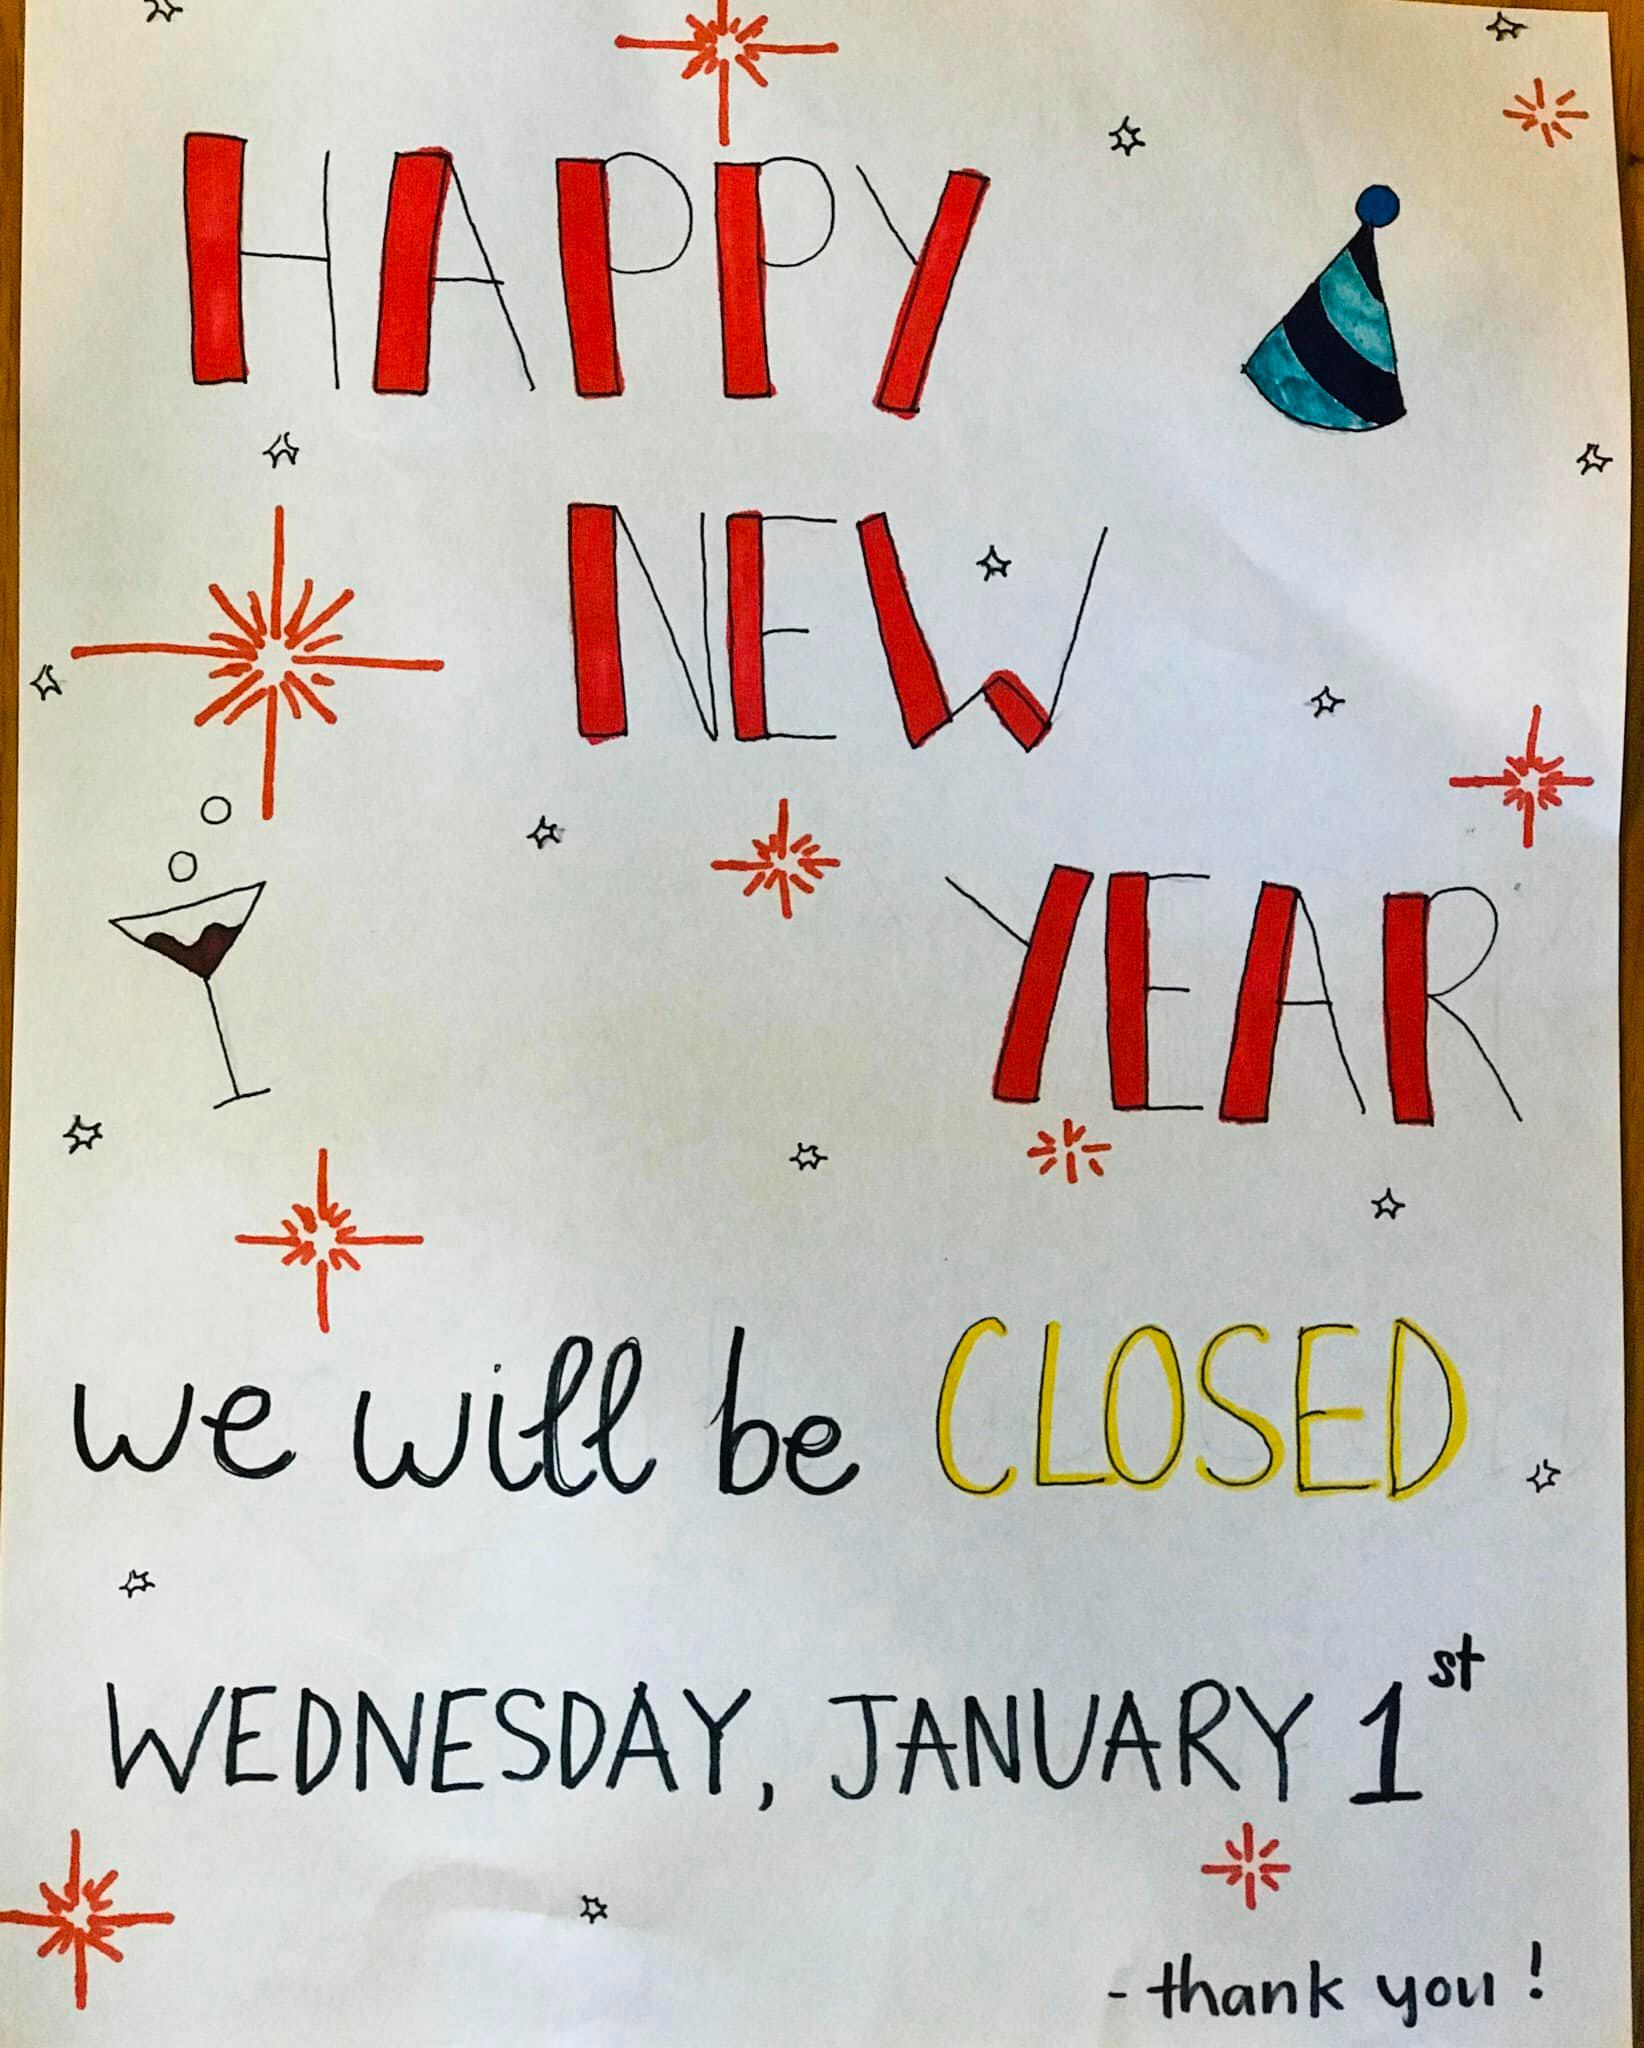 HAPPY
NEW
YEAR
we will be CLOSED
WEDNESDAY, JANUARY 1st
- thank you!